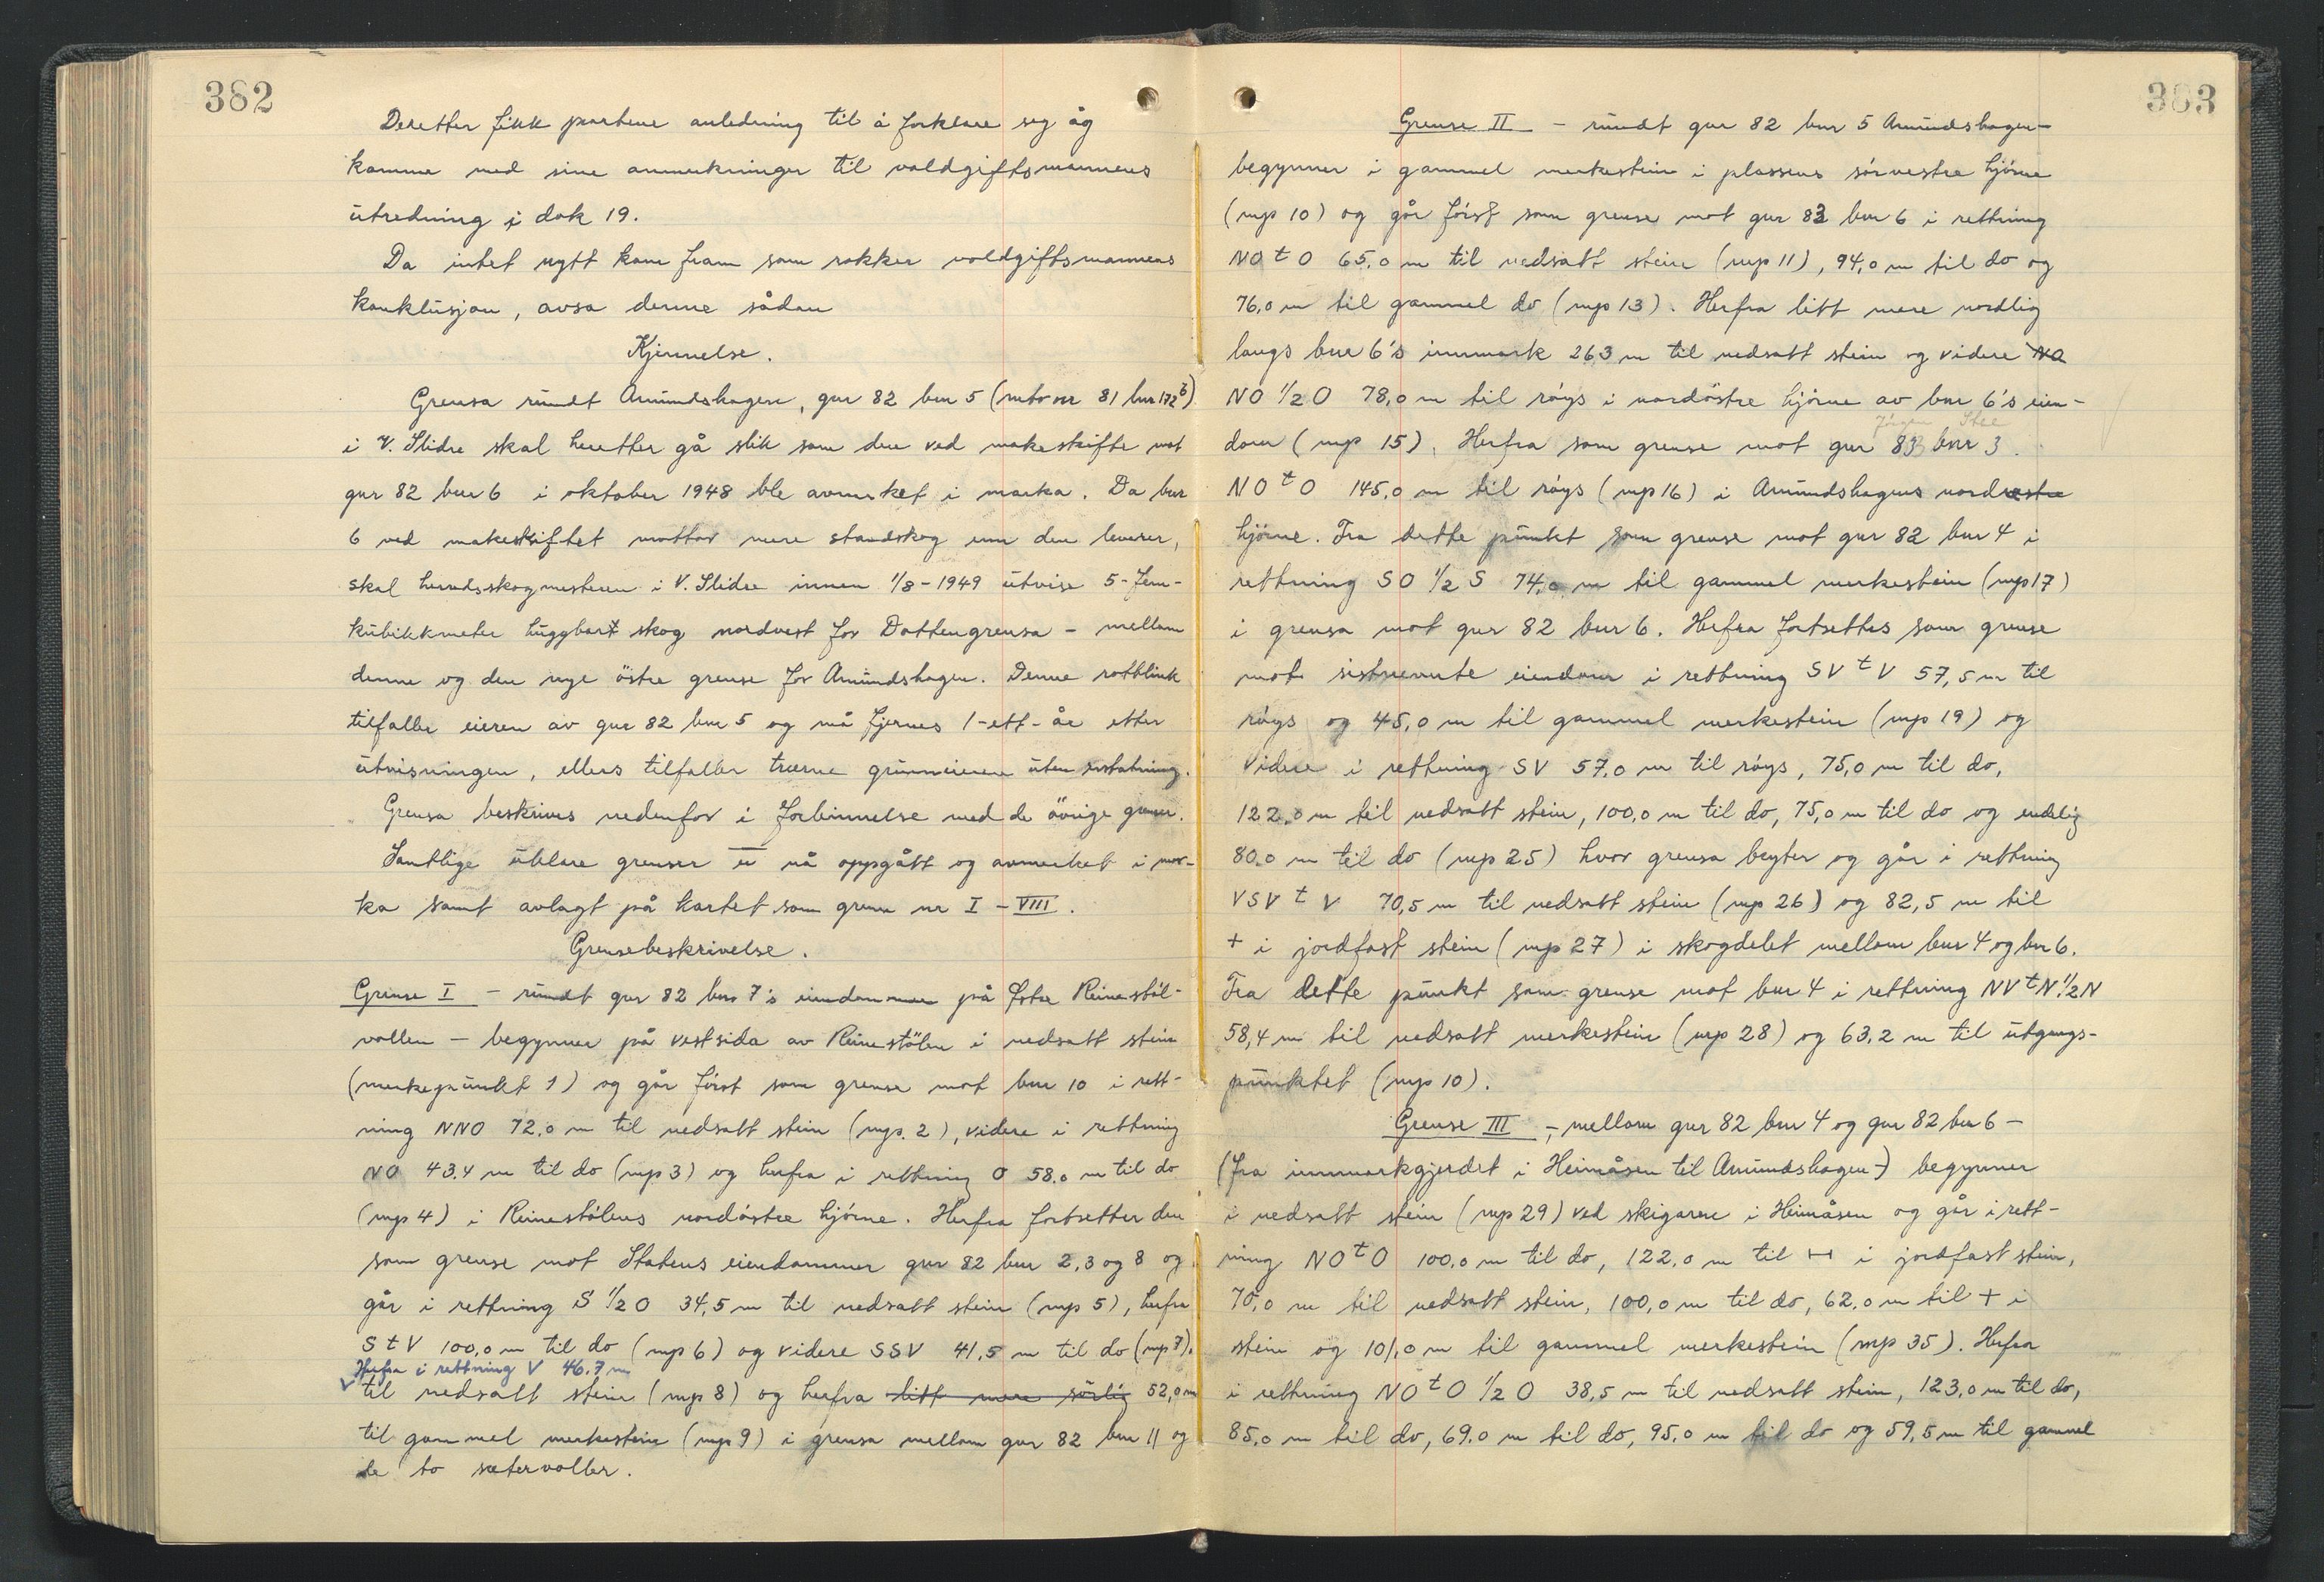 382
Deretter fikk partene anledning til å forklare seg åg
komme med sine anmerkninger til voldgiftsmannens
utredning i dok 19.
Da intet nytt kom fram som rokker voldgiftsmannens
konklusjon, avsa denne sådan
Kjennelse.
Grensa rundt Amundshagen, gnr 82 bnr 5 (mtr nr 81 lnr 172b)
i V. Slidre skal heretter gå slik som den ved makeskifte mot
gnr 82 bnr 6 i oktober 1948 ble avmerket i marka. Da bnr
6 ved makeskiftet mottar mere standskog enn den leverer,
skal herredsskogmesteren i V. Slidre innen 1/8-1949 utvise 5-fem-
kubikkmeter huggbart skog nordvest for Dottengrensa - mellom
denne og den nye östre grense for Amundshagen. Denne rotblink
tilfaller eieren av gnr 82 bnr 5 og må fjernes 1-ett-år etter
utvisningen, ellers tilfaller trærne grunneieren uten erstatning.
Grensa beskrives nedenfor i forbinnelse med de övrige grenser.
Samtlige uklare grenser er nå oppgått og avmerket i mar-
ka samt avlagt på kartet som grense nr I - VIII.
Grensebeskrivelse.
Grense I - rundt gnr 82 bnr 7's eiendommer på Østre Reinestöl-
vollen - begynner på vestsida av Reinestölen i nedsatt stein
(merkepunkt 1) og går först som grense mot bnr 10 i rett-
ning NNO 72,0 m til nedsatt stein (mp. 2), videre i rettning
NO 43,4 m til do (mp 3) og herfra i rettning O 58,0 m til do
(mp 4) i Reinestölens nordöstre hjörne. Herfra fortsetter den
som grense mot Statens eiendommer gnr 82 bnr 2,3 og 8 og
går i rettning S 1/2 O 34,5 m til nedsatt stein (mp 5), herfra
S t V 100,0 m til do (mp 6) og videre SSV 41,5 m til do (mp 7).
Herfra i rettning V 46,7 m
til nedsatt stein (mp 8) og herfra litt mere sörlig 52,0 m
til gammel merkestein (mp 9) i grensa mellom gnr 82 bnr 11 og
de to setervoller.
383
Grense II - rundt gnr 82 bnr 5 Amundshagen-
begynner i gammel merkestein i plassens sörvestre hjörne
(mp 10) og går först som grense mot gnr 82 bnr 6 i rettning
NO t O 65,0 m til nedsatt stein (mp 11), 94,0 m til do og
76,0 m til gammel do (mp 13). Herfra litt mere nordlig
langs bnr 6's innmark 263 m til nedsatt stein og videre NO
NO 1/2 O 78,0 m til röys i nordöstre hjörne av bnr 6's eien-
dom (mp 15). Herfra som grense mot gnr 83 bnr 3.
NO t O 145,0 m til röys (mp 16) i Amundshagens nordvestre
hjörne. Fra dette punkt som grense mot gnr 82 bnr 4 i
rettning SO 1/2 S 74,0 m til gammel merkestein (mp 17)
i grensa mot gnr 82 bnr 6. Herfra fortsettes som grense
mot sistnevnte eiendom i rettning SV t V 57,5 m til
röys og 45,0 m til gammel merkestein (mp 19) og
videre i rettning SV 57,0 m til röys, 75,0 m til do,
122,0 m til nedsatt stein, 100,0 m til do, 75,0 m til do og endelig
80,0 m til do (mp 25) hvor grensa bryter og går i rettning
VSV t V 70,5 m til nedsatt stein (mp 26) og 82,5 m til
+ i jordfast stein (mp 27) i skogdelet mellom bnr 4 og bnr 6.
Fra dette punkt som grense mot bnr 4 i rettning NV t N 1/2 N
58,4 m til nedsatt merkestein (mp 28) og 63,2 m til utgangs-
punktet (mp 10).
Grense III -, mellom gnr 82 bnr 4 og gnr 82 bnr 6 -
(fra innmarkgjerdet i Heimåsen til Amundshagen-) begynner
i nedsatt stein (mp 29) ved skigaren i Heimåsen og går i rett-
ning NO t O 100,0 m til do, 122,0 m til ⊢⊣ i jordfast stein,
70,0 m til nedsatt stein, 100,0 m til do, 62,0 m til + i
stein og 101,0 m til gammel merkestein (mp 35). Herfra
i rettning NO t O 1/2 O 38,5 m til nedsatt stein, 123,0 m til do,
85,0 m til do, 69,0 m til do, 95,0 m til do og 59,5 m til gammel